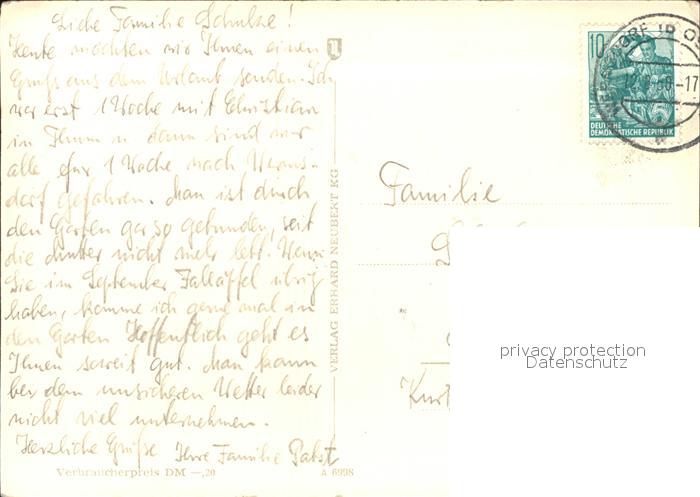 Liebe Familie Schulze!
Heute möchten wir Ihnen einen
Gruß aus dem Urlaub senden. Ich
war erst 1 Woche mit Christian
in Thum u. dann sind wir
alle für 1 Woche nach
dorf gefahren. Man ist durch
den Garten gar so gebunden, seit
die Mutter nicht mehr lebt. Wenn
Sie im September Falläpfel übrig
haben, komme ich gerne mal in
den Garten. Hoffentlich geht es
Ihnen soweit gut. Man kann
bei dem unsicheren Wetter leider
nicht viel unternehmen.
Herzliche Grüße Ihre Familie Pabst
Verbraucherpreis DM —,20
A 6998
VERLAG ERHARD NEUBERT KG
10
DEUTSCHE
DEMOKRATISCHE REPUBLIK
Familie
Kurt
privacy protection
Datenschutz